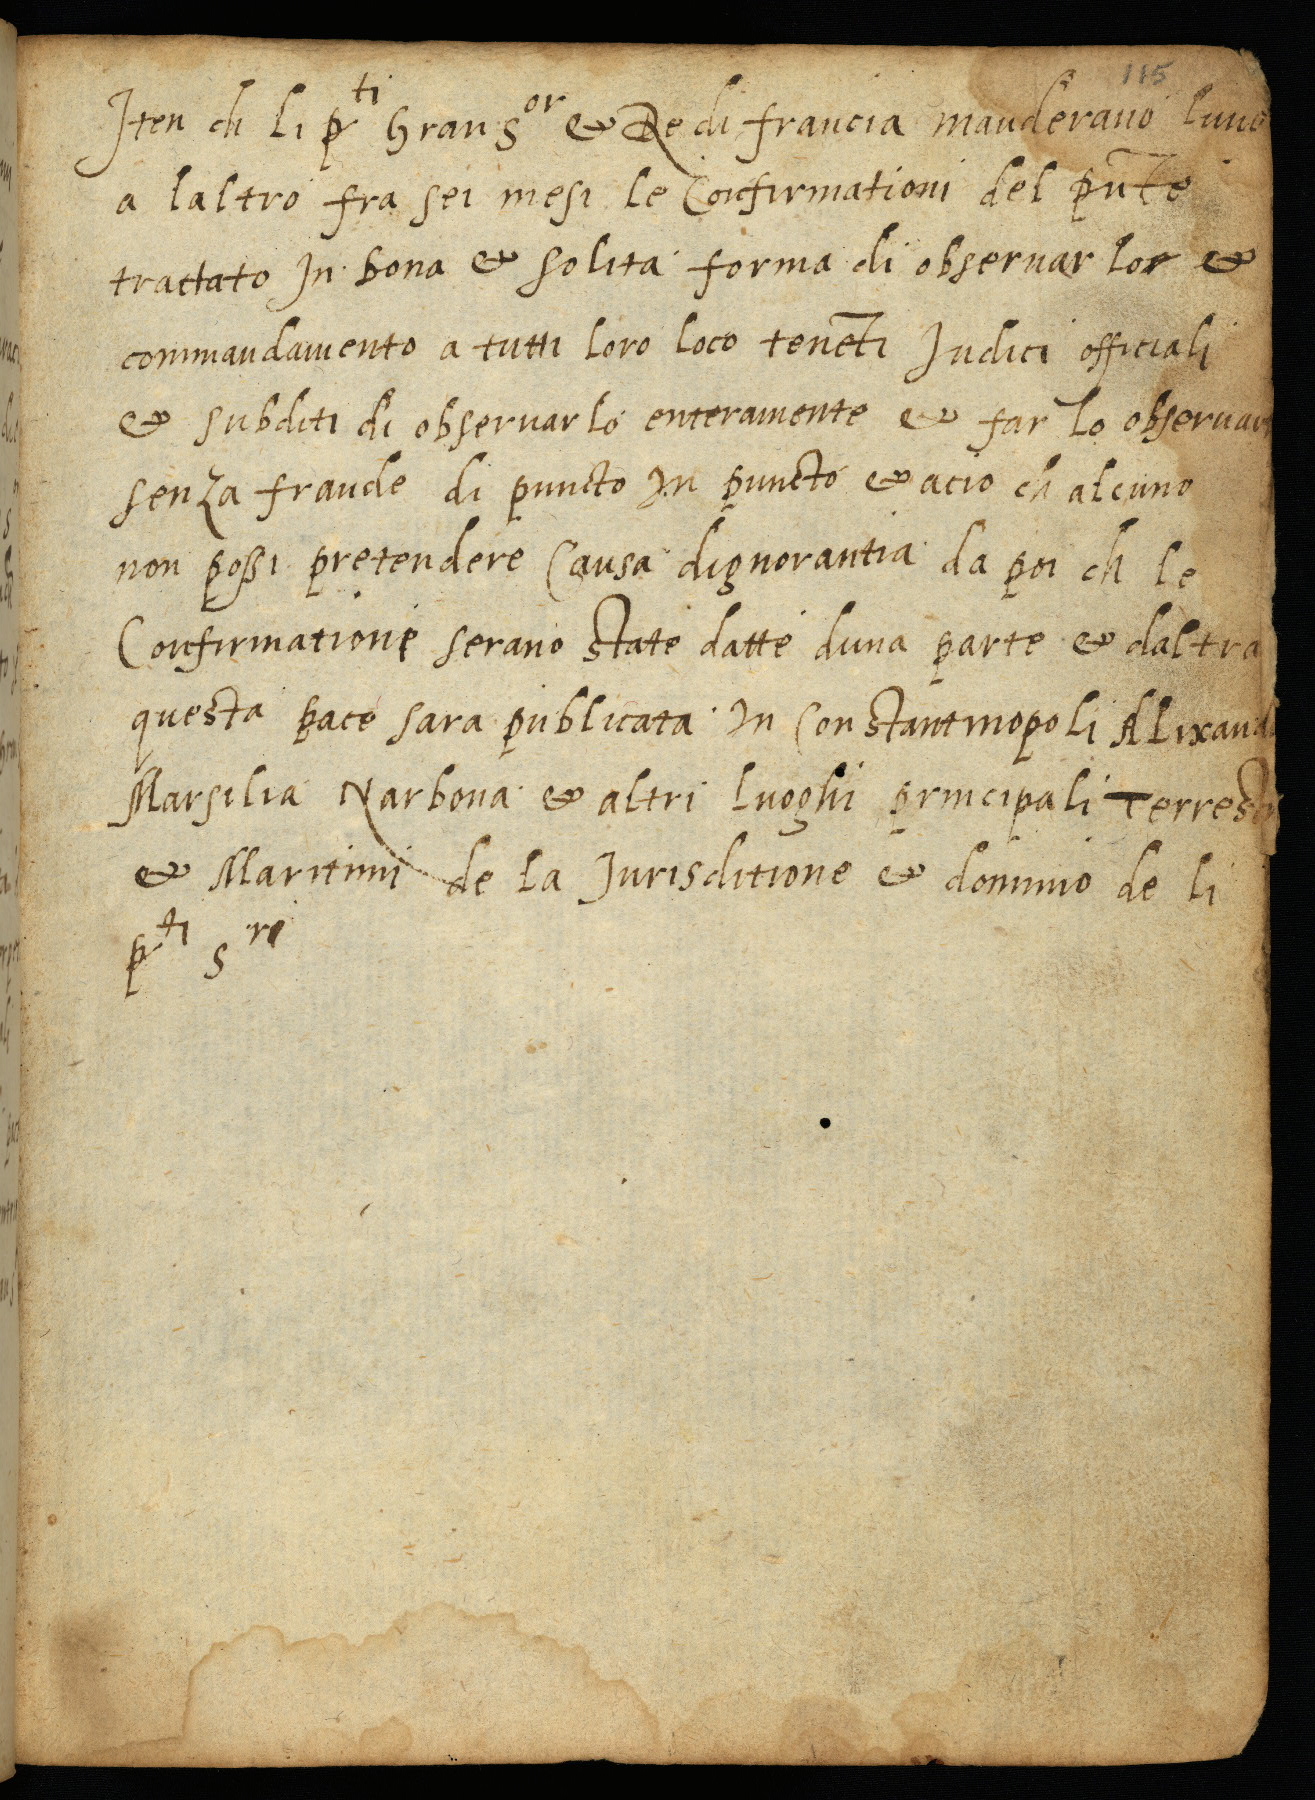 115
Iten ch li p^ti Gran S^or & Re di francia manderano luno
a laltro fra sei mesi le Confirmationi del pñte
trattato In bona & solita forma di observar lo &
commandamento a tutti loro loco teneti Iudici officiali
& subditi di observarlo enteramente & far lo observar
senza fraude di puncto In puncto & acio ch alcuno
non possi pretendere Causa dignorantia da poi ch le
Confirmationi serano state datte duna parte & daltra
questa pace sara publicata In Constantinopoli Alixand
Marsilia Narbona & altri luoghi principali Terrest
& Maritimi de la Iurisditione & dominio de li
p^ti S^ri